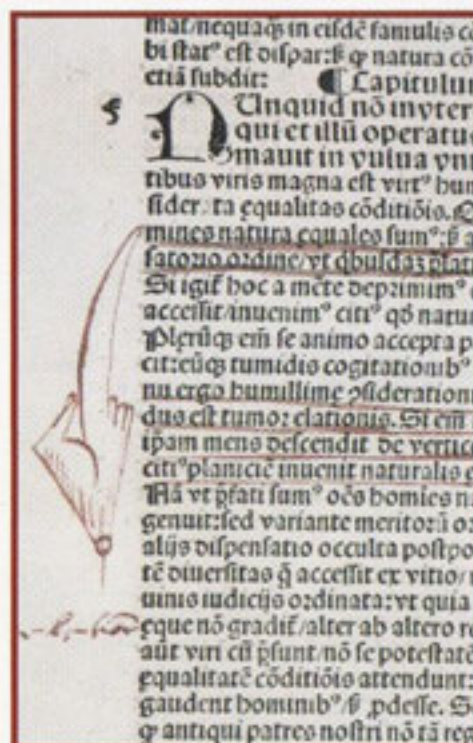 mat/nequaq̄ in eisdē famulis cō
bi statꝰ est dispar: ꝙ natura cō
etiā subdit: ¶ Capitulum
NUnquid nō in vter
qui et illū operatus
ormauit in vulua vn
tibus viris magna est virtꝰ hum
siderata equalitas cōditiōis. O
mines natura equales sumꝰ: ß a
satorio ordine/vt qbusdaʒ p̄lat
Si igit̄ hoc a mēte deprimimꝰ
accessit/inuenimꝰ citiꝰ qd̄ natur
Plerūqʒ em̄ se animo accepta p
cit: eūqʒ tumidis cogitationibꝰ
nu ergo humillime ꝯsideration
dus est tumor elationis. Si em̄
ip̄am mens descendit de vertice
citiꝰ planiciē inuenit naturalis e
Nā vt p̄fati sumꝰ oēs homies n
genuit: sed variante meritoꝝ o
alijs dispensatio occulta postpo
tē diuersitas q̄ accessit ex vitio/
uinis iudicijs ordinata: vt quia
eque nō gradit̄/alter ab altero re
aūt viri cū p̄sunt/nō se potestatē
equalitatē cōditiōis attendunt:
gaudent hominibꝰ/ß ꝓdesse. S
ꝙ antiqui patres nostri nō tā reg